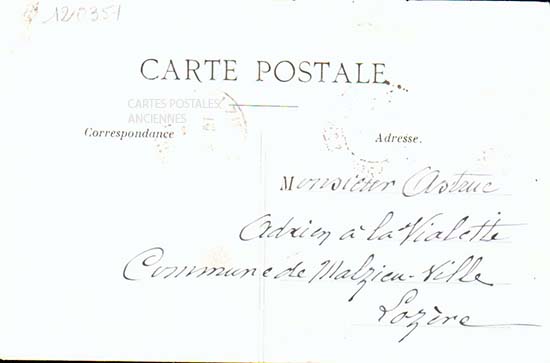 120351
CARTE POSTALE
CARTES POSTALES
ANCIENNES
Correspondance
Adresse.
Monsieur Astruc
Adrien à la Vialette
Commune de Malzieu-Ville
Lozère